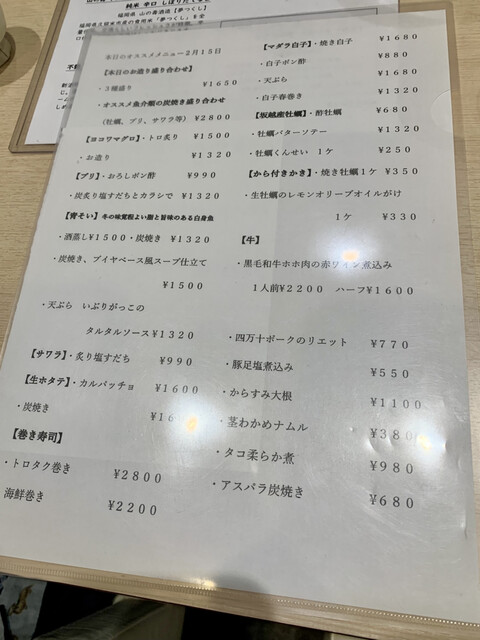 純米 辛口 しぼりたて
福岡県 山の壽酒造「夢つくし」
福岡県久留米市産の食用米「夢つくし」を全
本日のオススメメニュー2月15日
【本日のお造り盛り合わせ】
・3種盛り ¥1650
・オススメ魚介類の炭焼き盛り合わせ
(牡蠣、ブリ、サワラ等) ¥2800
【ヨコワマグロ】・トロ炙り ¥1500
・お造り ¥1320
【ブリ】・おろしポン酢 ¥990
・炭炙り塩すだちとカラシで ¥1320
【青そい】冬の味覚程よい脂と旨味のある白身魚
・酒蒸し¥1500・炭焼き ¥1320
・炭焼き、ブイヤベース風スープ仕立て
¥1500
・天ぷら いぶりがっこの
タルタルソース¥1320
【サワラ】・炙り塩すだち ¥990
【生ホタテ】・カルパッチョ ¥1600
・炭焼き ¥16
【巻き寿司】
・トロタク巻き ¥2800
海鮮巻き ¥2200
【マダラ白子】・焼き白子 ¥1680
・白子ポン酢 ¥880
・天ぷら ¥1320
・白子春巻き ¥1320
【坂越産牡蠣】・酢牡蠣 ¥680
・牡蠣バターソテー ¥1320
・牡蠣くんせい 1ケ ¥250
【から付きかき】・焼き牡蠣1ケ ¥350
・生牡蠣のレモンオリーブオイルがけ
1ケ ¥330
【牛】
・黒毛和牛ホホ肉の赤ワイン煮込み
1人前¥2200 ハーフ¥1600
・四万十ポークのリエット ¥770
・豚足塩煮込み ¥550
・からすみ大根 ¥1100
・茎わかめナムル ¥380
・タコ柔らか煮 ¥980
・アスパラ炭焼き ¥680